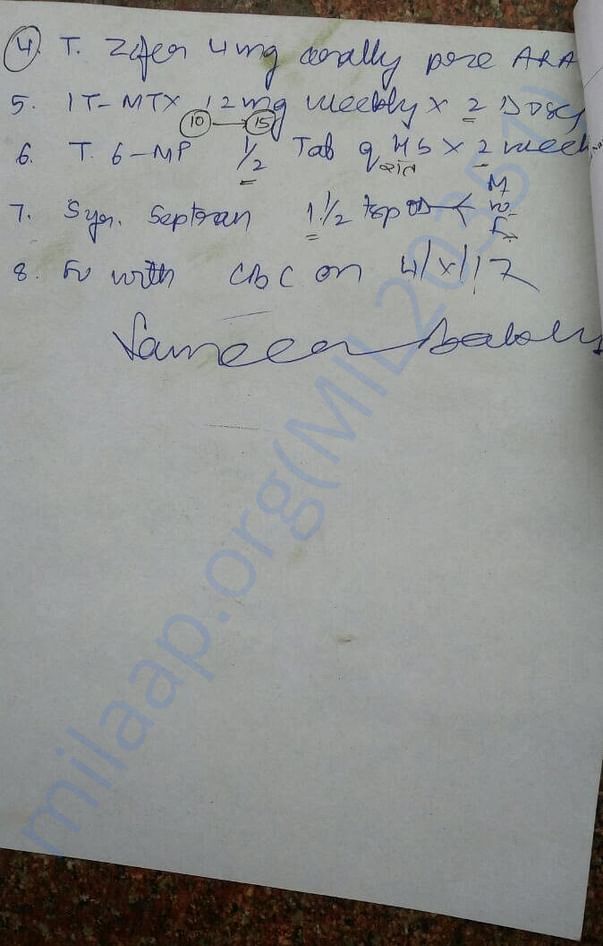 4. T. Zofer 4mg orally pre ARA
5. IT-MTX 12mg weekly x 2 Doses
10 → 15
6. T. 6-MP 1/2 Tab q HS x 2 week
7. Syr. Septran 1 1/2 tsp BD M W F
8. FU with CBC on 4/X/17
Sameer
milaap.org(MIL203351)